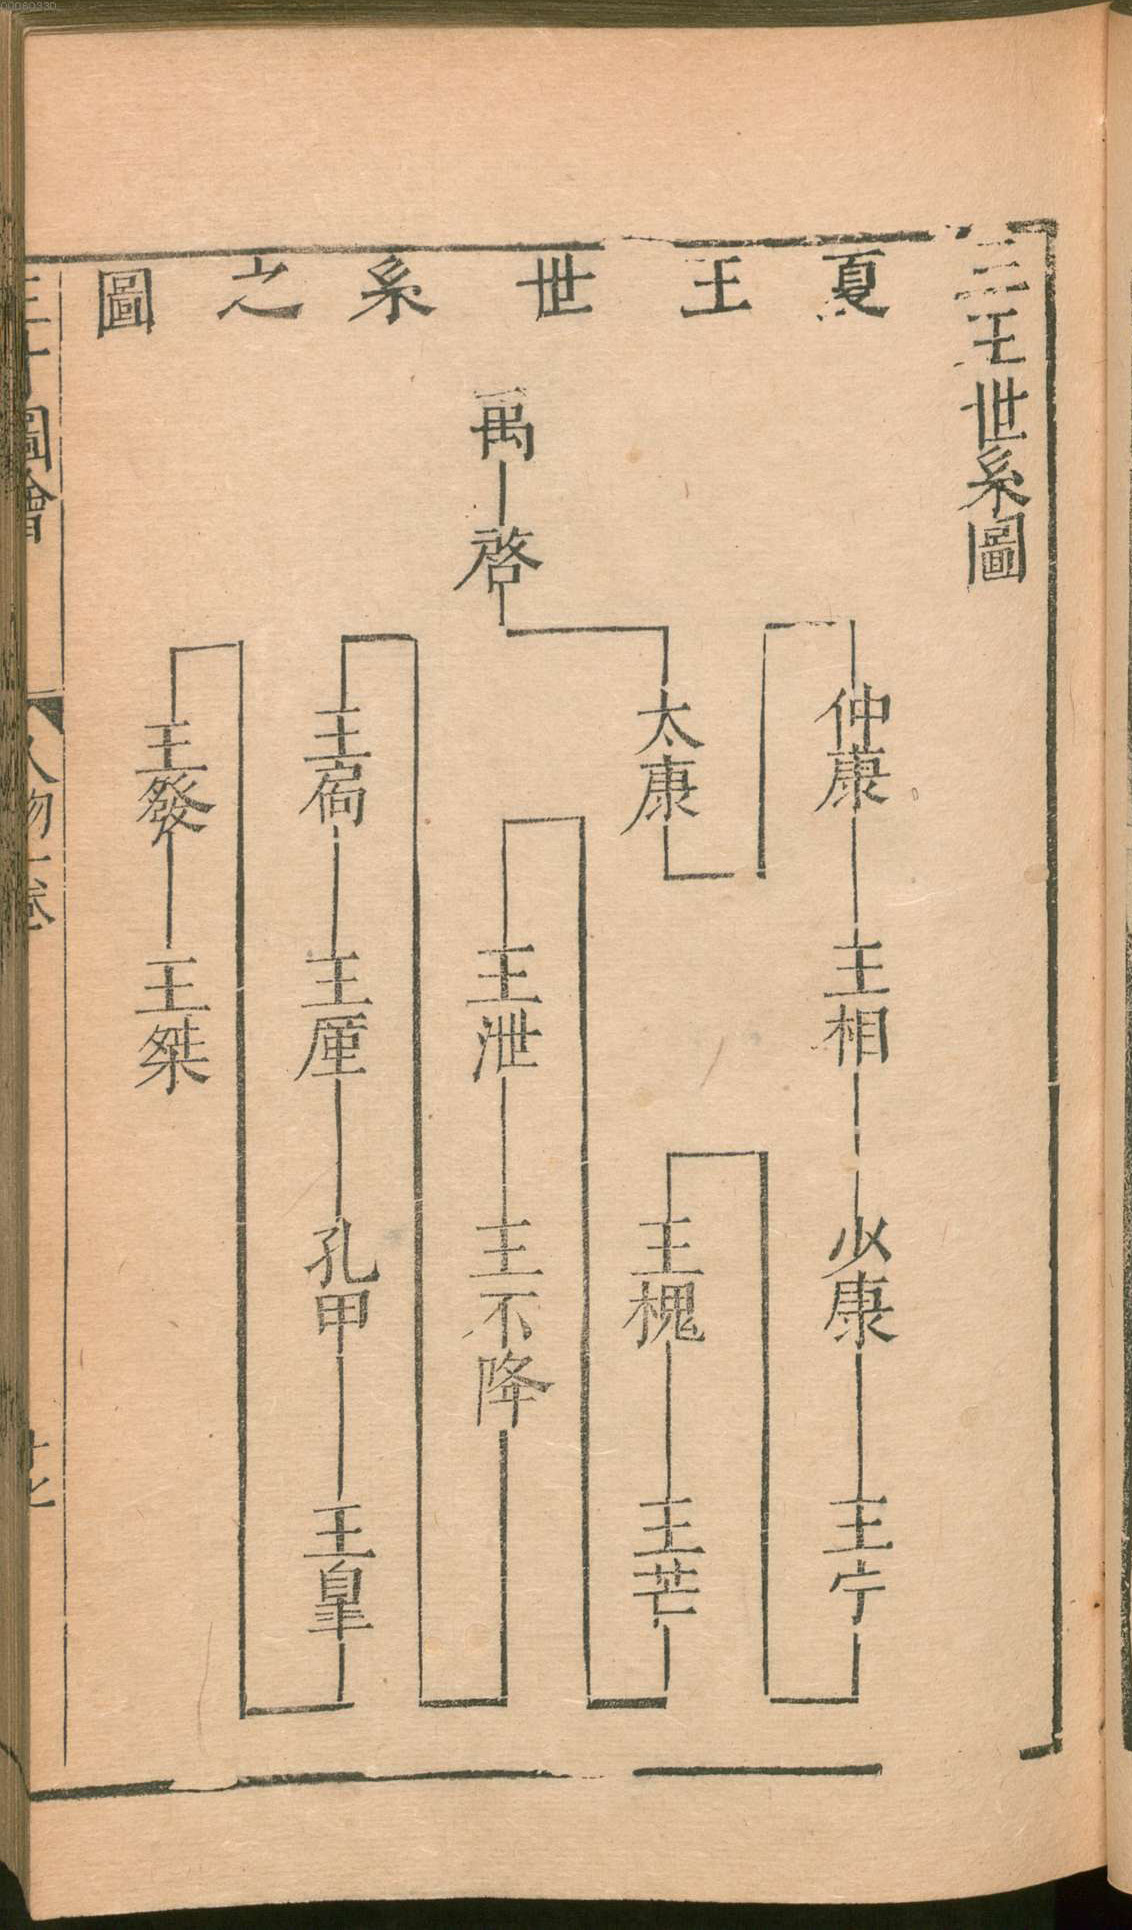 三王世系圖
夏王世系之圖
禹
啓
太康
仲康
王相
少康
王宁
王槐
王芒
王泄
王不降
王扃
王厘
孔甲
王皐
王發
王桀
三才圖會
人物一卷
00060330